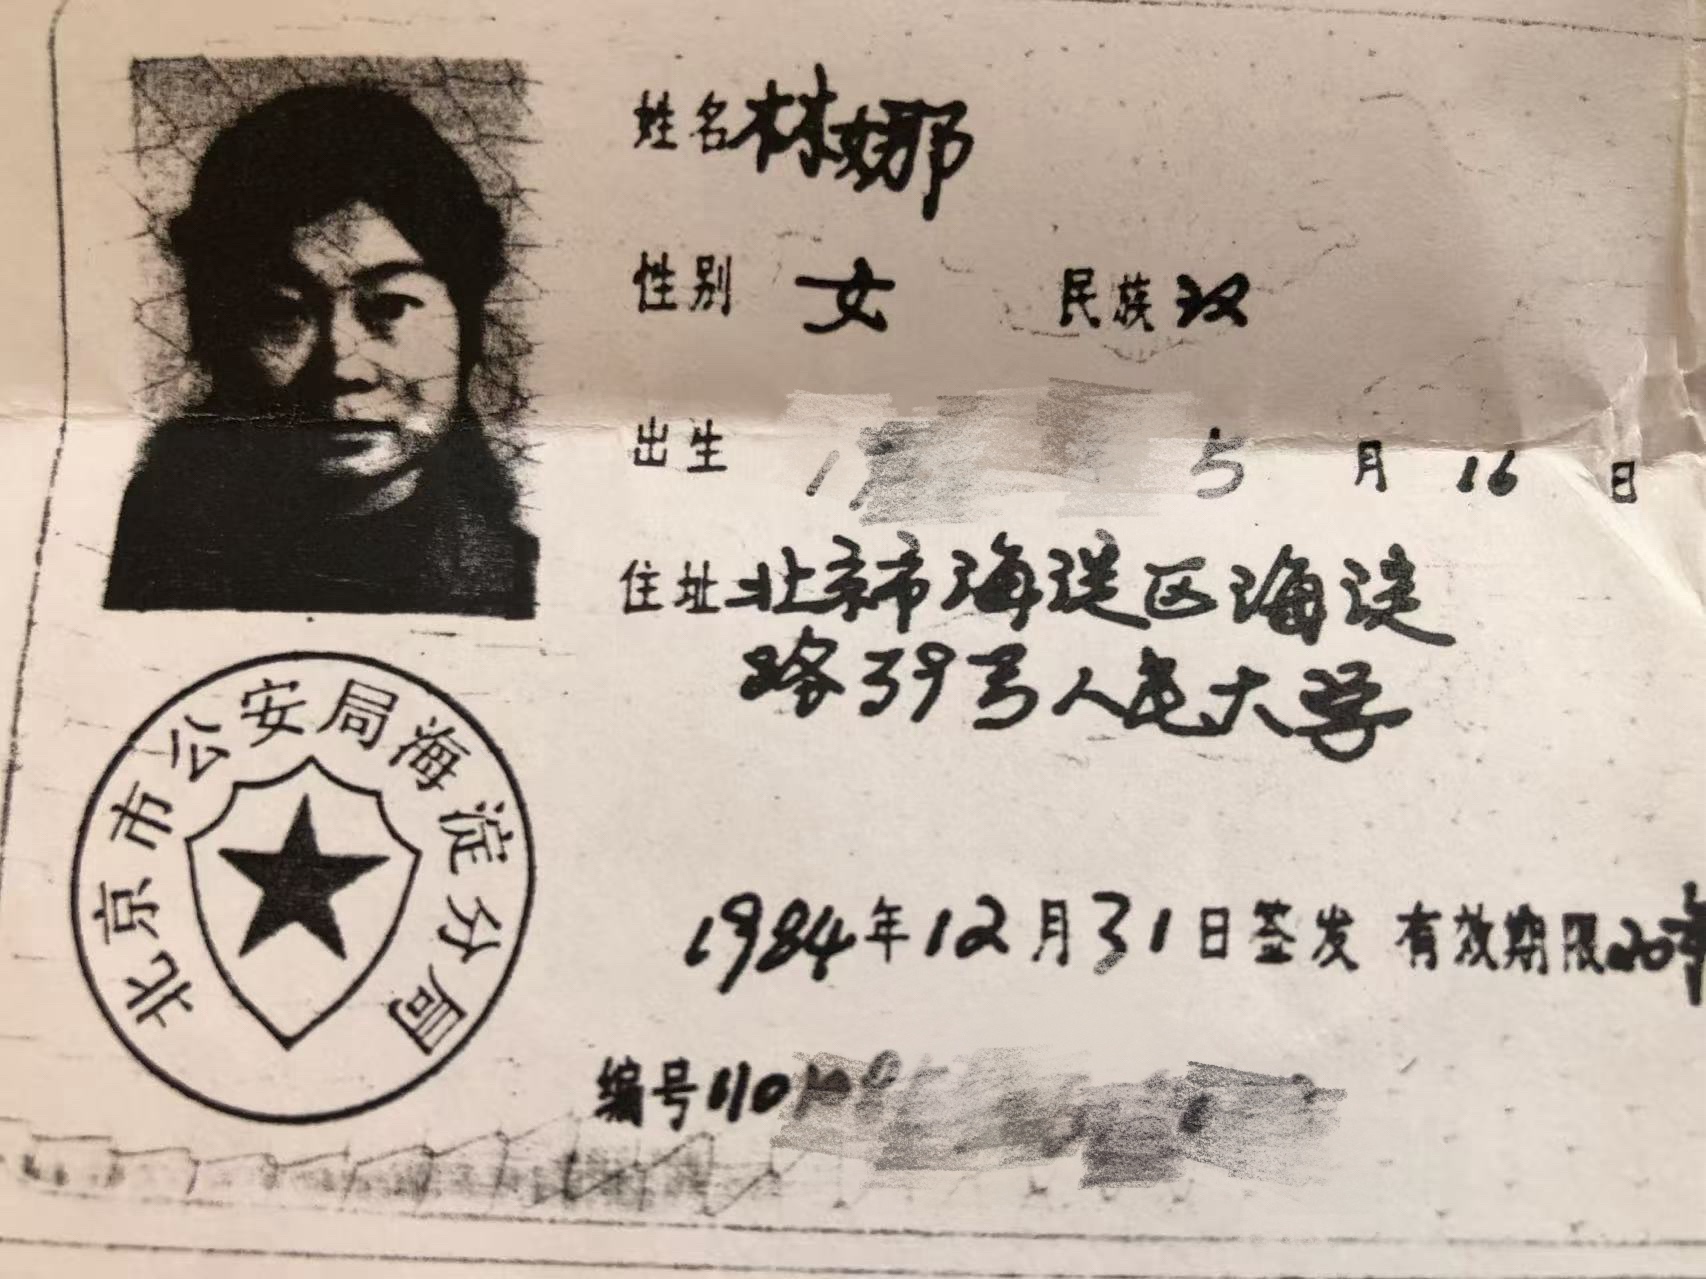 姓名 林娜
性别 女 民族 汉
出生 5 月 16 日
住址 北京市海淀区海淀
路39号人民大学
北京市公安局海淀分局
1984年12月31日签发 有效期限20年
编号110